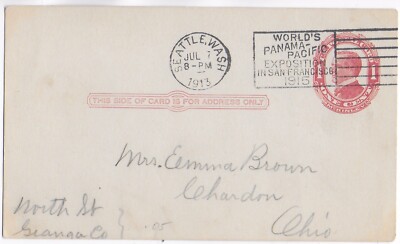 SEATTLE, WASH
JUL 7
8-PM
1913
WORLD'S
PANAMA-
PACIFIC
EXPOSITION
IN SAN FRANCISCO
1915
THIS SIDE OF CARD IS FOR ADDRESS ONLY
Mrs. Emma Brown
Chardon
Ohio
North St
Geauga Co